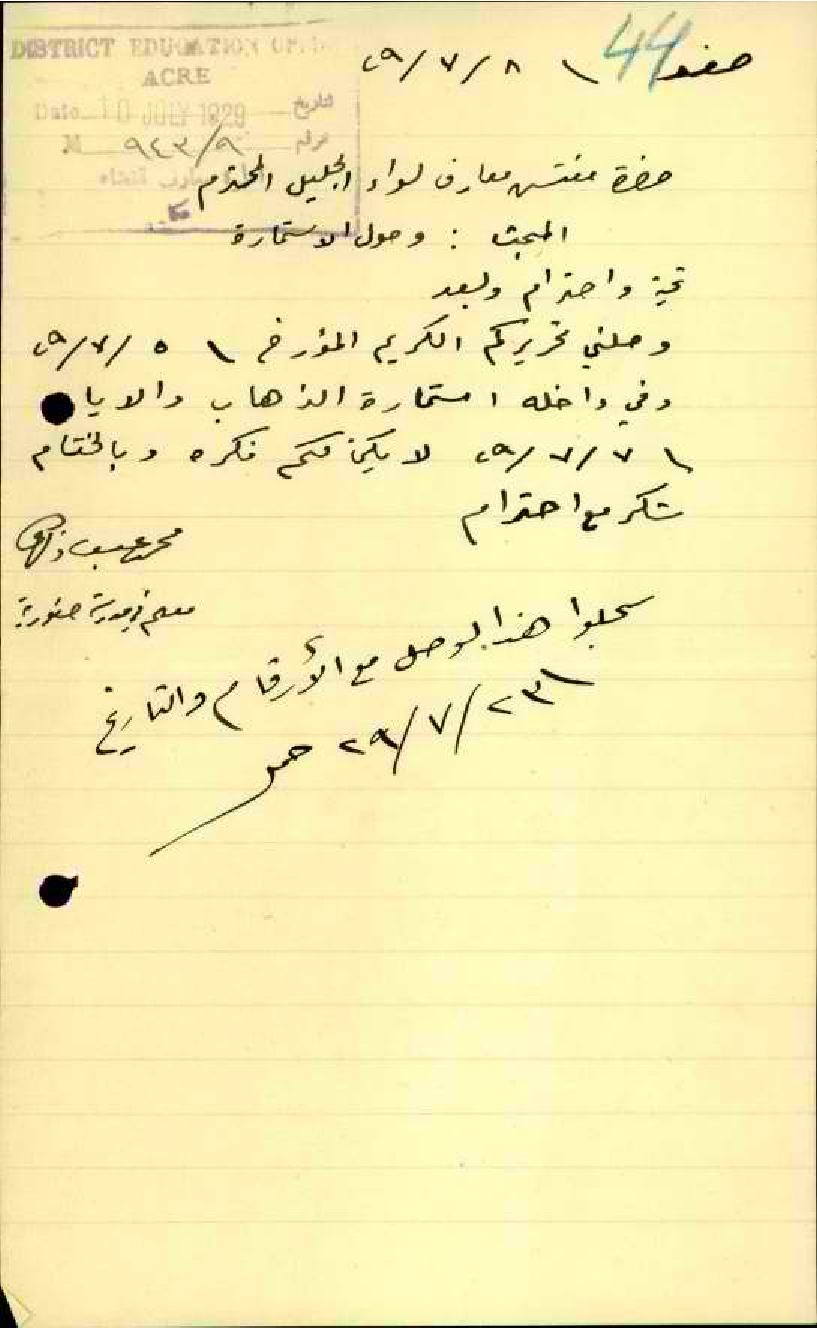 DISTRICT EDUCATION
ACRE
Date 10 JULY 1929 التاريخ
٩٤٣/٩ نمرة
44
٨/٧/٢٩
حضرة مفتش معارف لواء الجليل المحترم
المبحث : وصول الاستمارة
تحية واحترام وبعد
وصلني تحريركم الكريم المؤرخ ٥/٧/٢٩
وفي داخله استمارة الذهاب والايا
٧/٧/٢٩ وبالختام
شكر مع احترام
معلم صفورية
سجلوا هذا الوصل مع الأرقام والتاريخ
٢٣/٧/٢٩